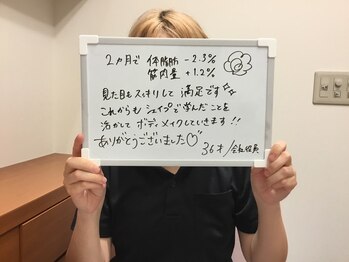 2ヵ月で 体脂肪 -2.3%
筋肉量 +1.2%
見た目もスッキリして 満足です
これからも シェイプで学んだことを
活かして ボディメイクしていきます!!
ありがとうございました♡
36才/会社役員